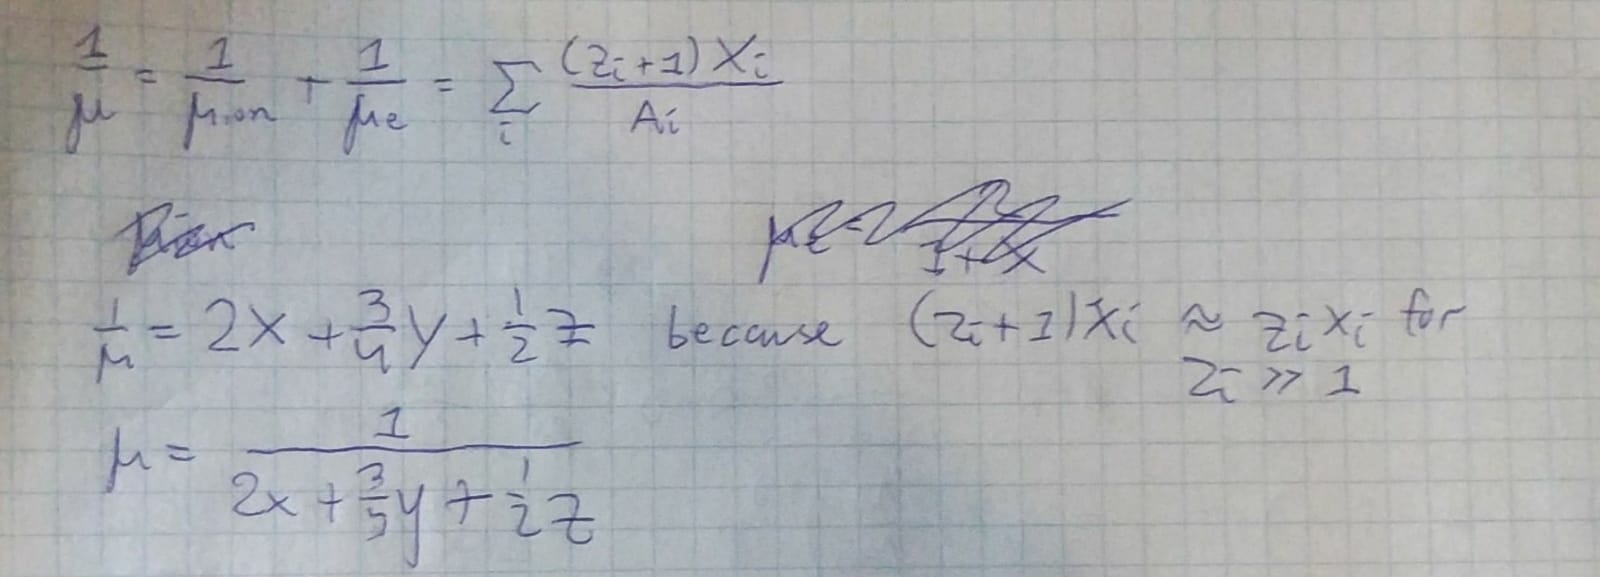 1/μ = 1/μion + 1/μe = Σi (Zi+1)Xi / Ai
1/μ = 2X + 3/4 Y + 1/2 Z because (Zi+1)Xi ≈ ZiXi for
Zi >> 1
μ = 1 / (2X + 3/5 Y + 1/2 Z)